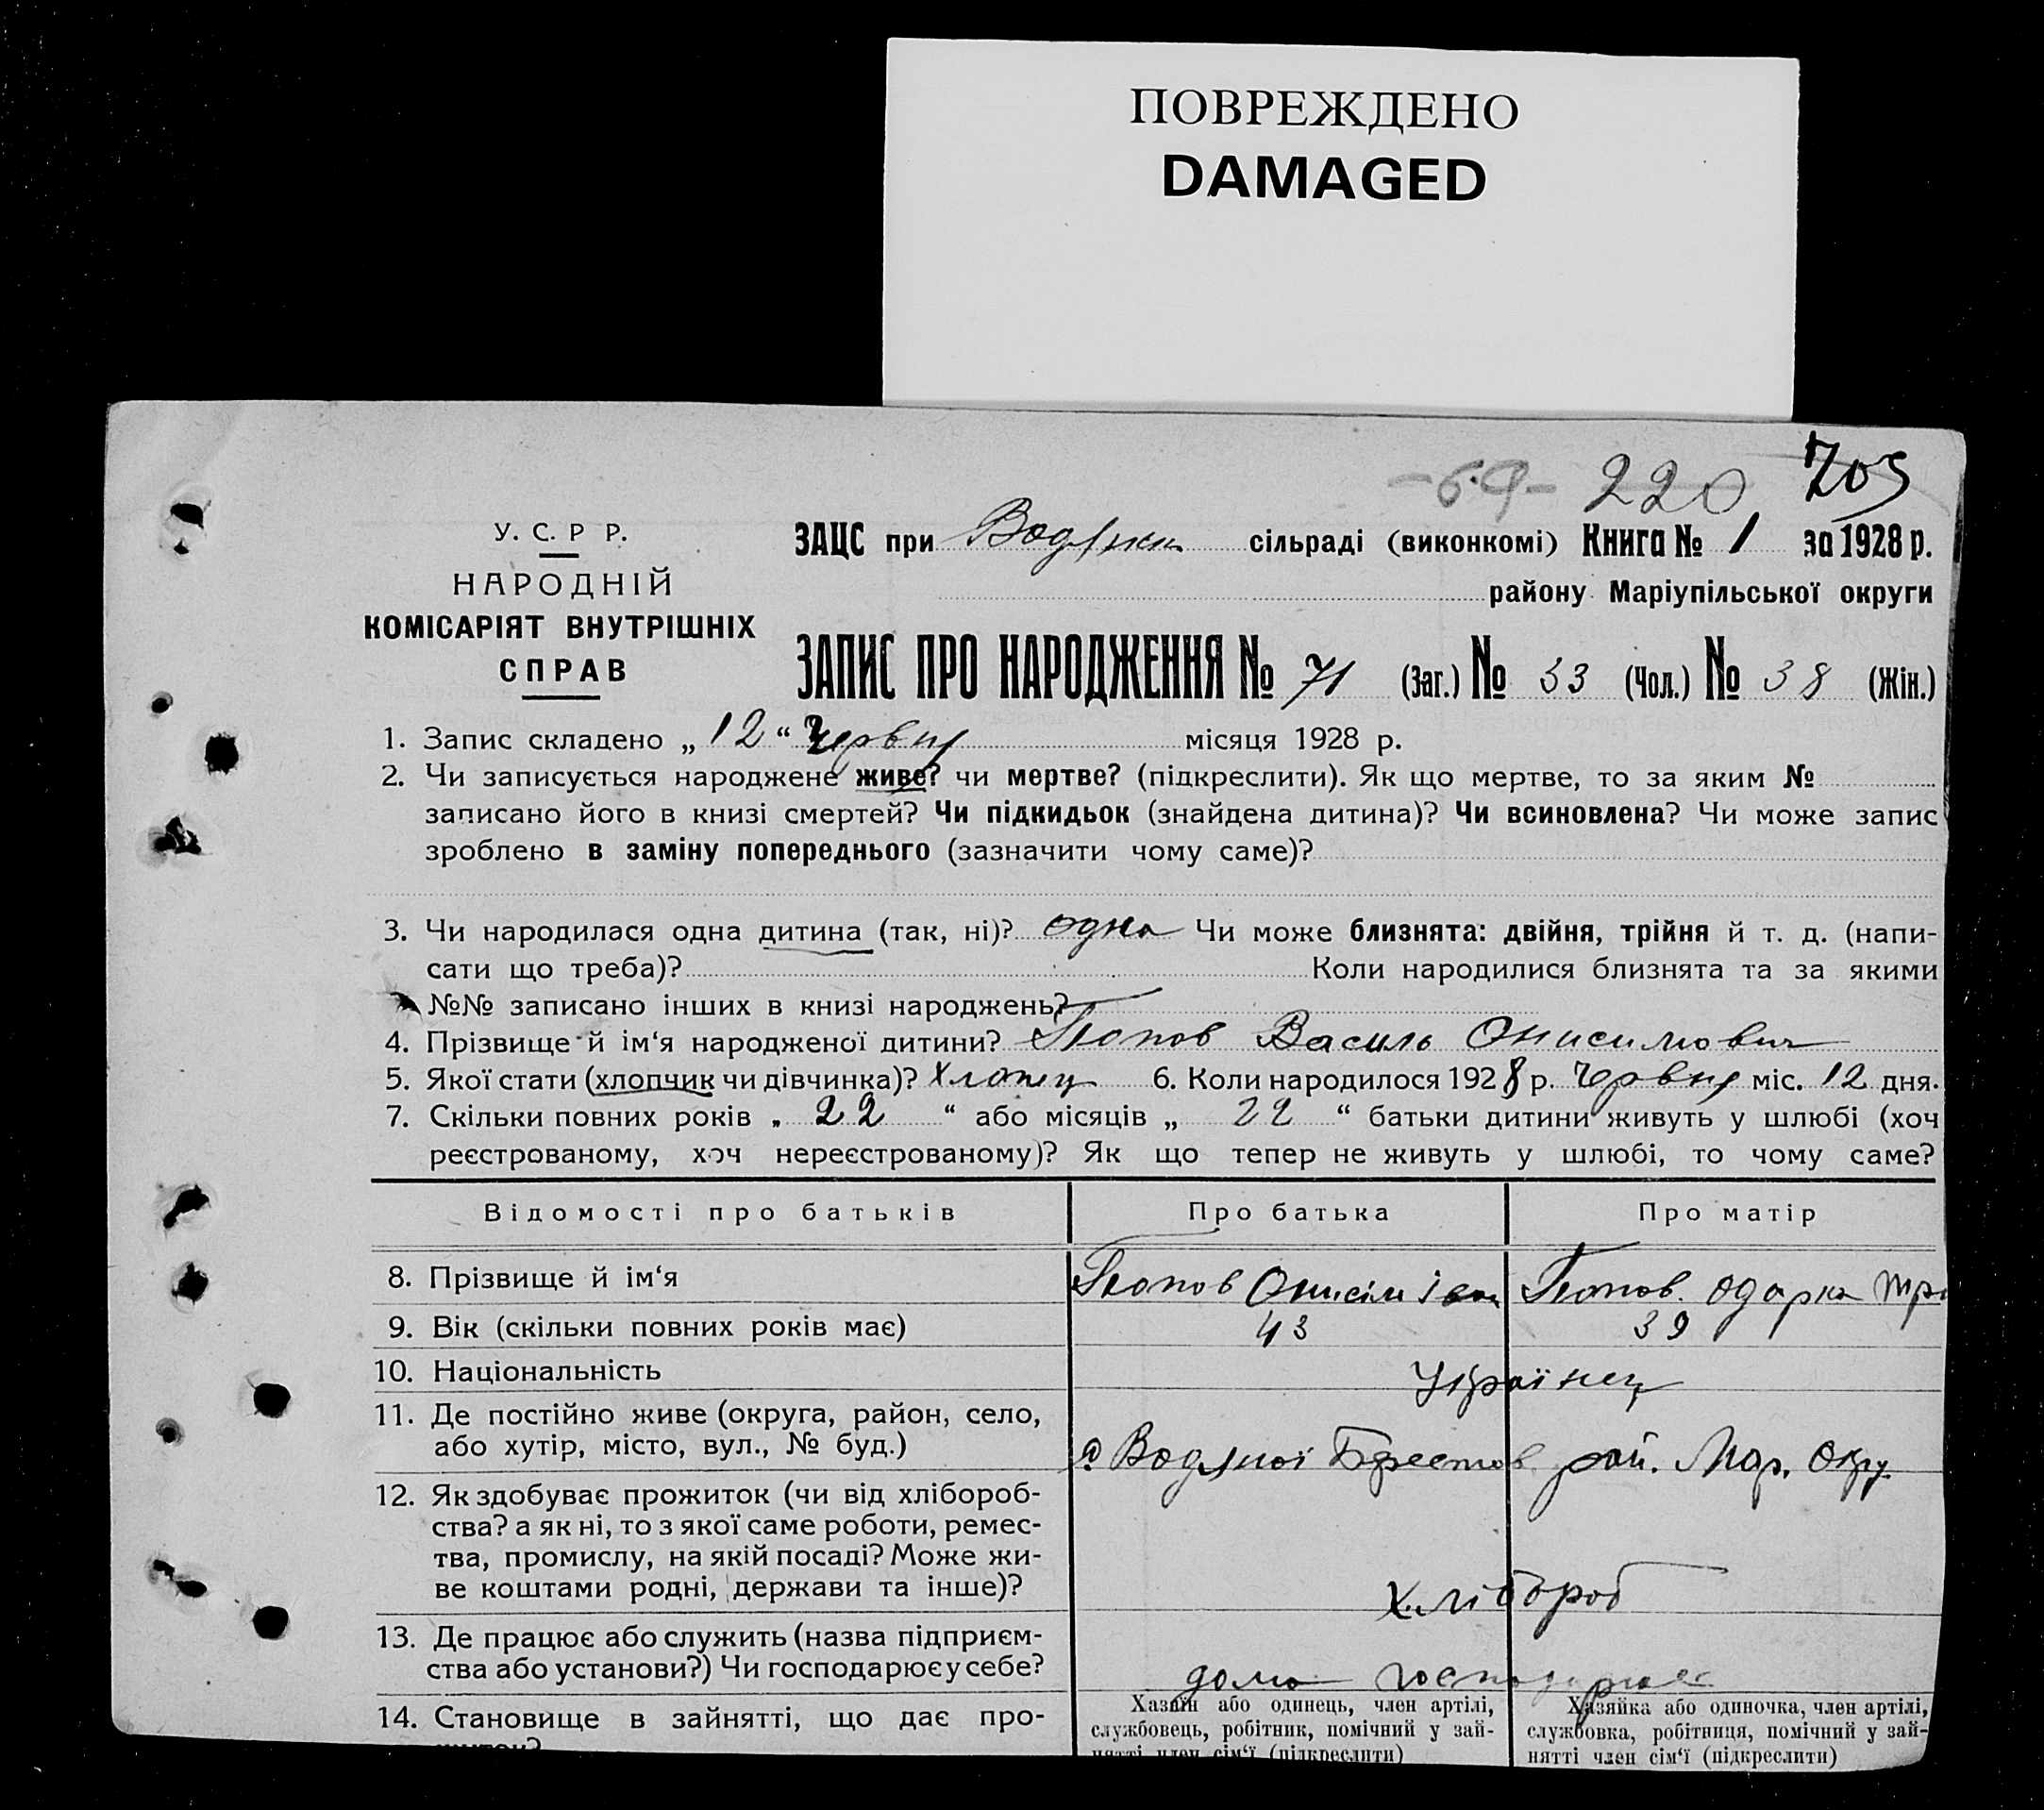 ПОВРЕЖДЕНО
DAMAGED
-69- 220 705
У. С. Р Р.
НАРОДНІЙ
КОМІСАРІЯТ ВНУТРІШНІХ
СПРАВ
ЗАЦС при Водяни сільраді (виконкомі) Книга № 1 за 1928 р.
району Маріупільської округи
ЗАПИС ПРО НАРОДЖЕННЯ № 71 (Заг.) № 33 (Чол.) № 38 (Жін.)
1. Запис складено „12“ Червня місяця 1928 р.
2. Чи записується народжене живе? чи мертве? (підкреслити). Як що мертве, то за яким №
записано його в книзі смертей? Чи підкидьок (знайдена дитина)? Чи всиновлена? Чи може запис
зроблено в заміну попереднього (зазначити чому саме)?
3. Чи народилася одна дитина (так, ні)? одна Чи може близнята: двійня, трійня й т. д. (напи-
сати що треба)? Коли народилися близнята та за якими
№№ записано інших в книзі народжень?
4. Прізвище й ім‘я народженої дитини? Попов Василь Онисимович
5. Якої стати (хлопчик чи дівчинка)? Хлопец 6. Коли народилося 1928 р. Червня міс. 12 дня.
7. Скільки повних років „ 22 “ або місяців „ 22 “ батьки дитини живуть у шлюбі (хоч
реєстрованому, хоч нереєстрованому)? Як що тепер не живуть у шлюбі, то чому саме?
Відомості про батьків Про батька Про матір
8. Прізвище й ім‘я Попов Онисім Іван Попов. Одарка Тро
9. Вік (скільки повних років має) 43 39
10. Національність Українец
11. Де постійно живе (округа, район, село,
або хутір, місто, вул., № буд.) Водяної Берестов рай. Мар. Окру.
12. Як здобуває прожиток (чи від хлібороб-
ства? а як ні, то з якої саме роботи, ремес-
тва, промислу, на якій посаді? Може жи-
ве коштами родні, держави та інше)? Хлібороб
13. Де працює або служить (назва підприєм-
ства або установи?) Чи господарює у себе? дома господарює
14. Становище в зайнятті, що дає про-
Хазяїн або одинець, член артілі,
службовець, робітник, помічний у зай-
нятті член сім‘ї (підкреслити)
Хазяйка або одиночка, член артілі,
службовка, робітниця, помічний у зай-
нятті член сім‘ї (підкреслити)